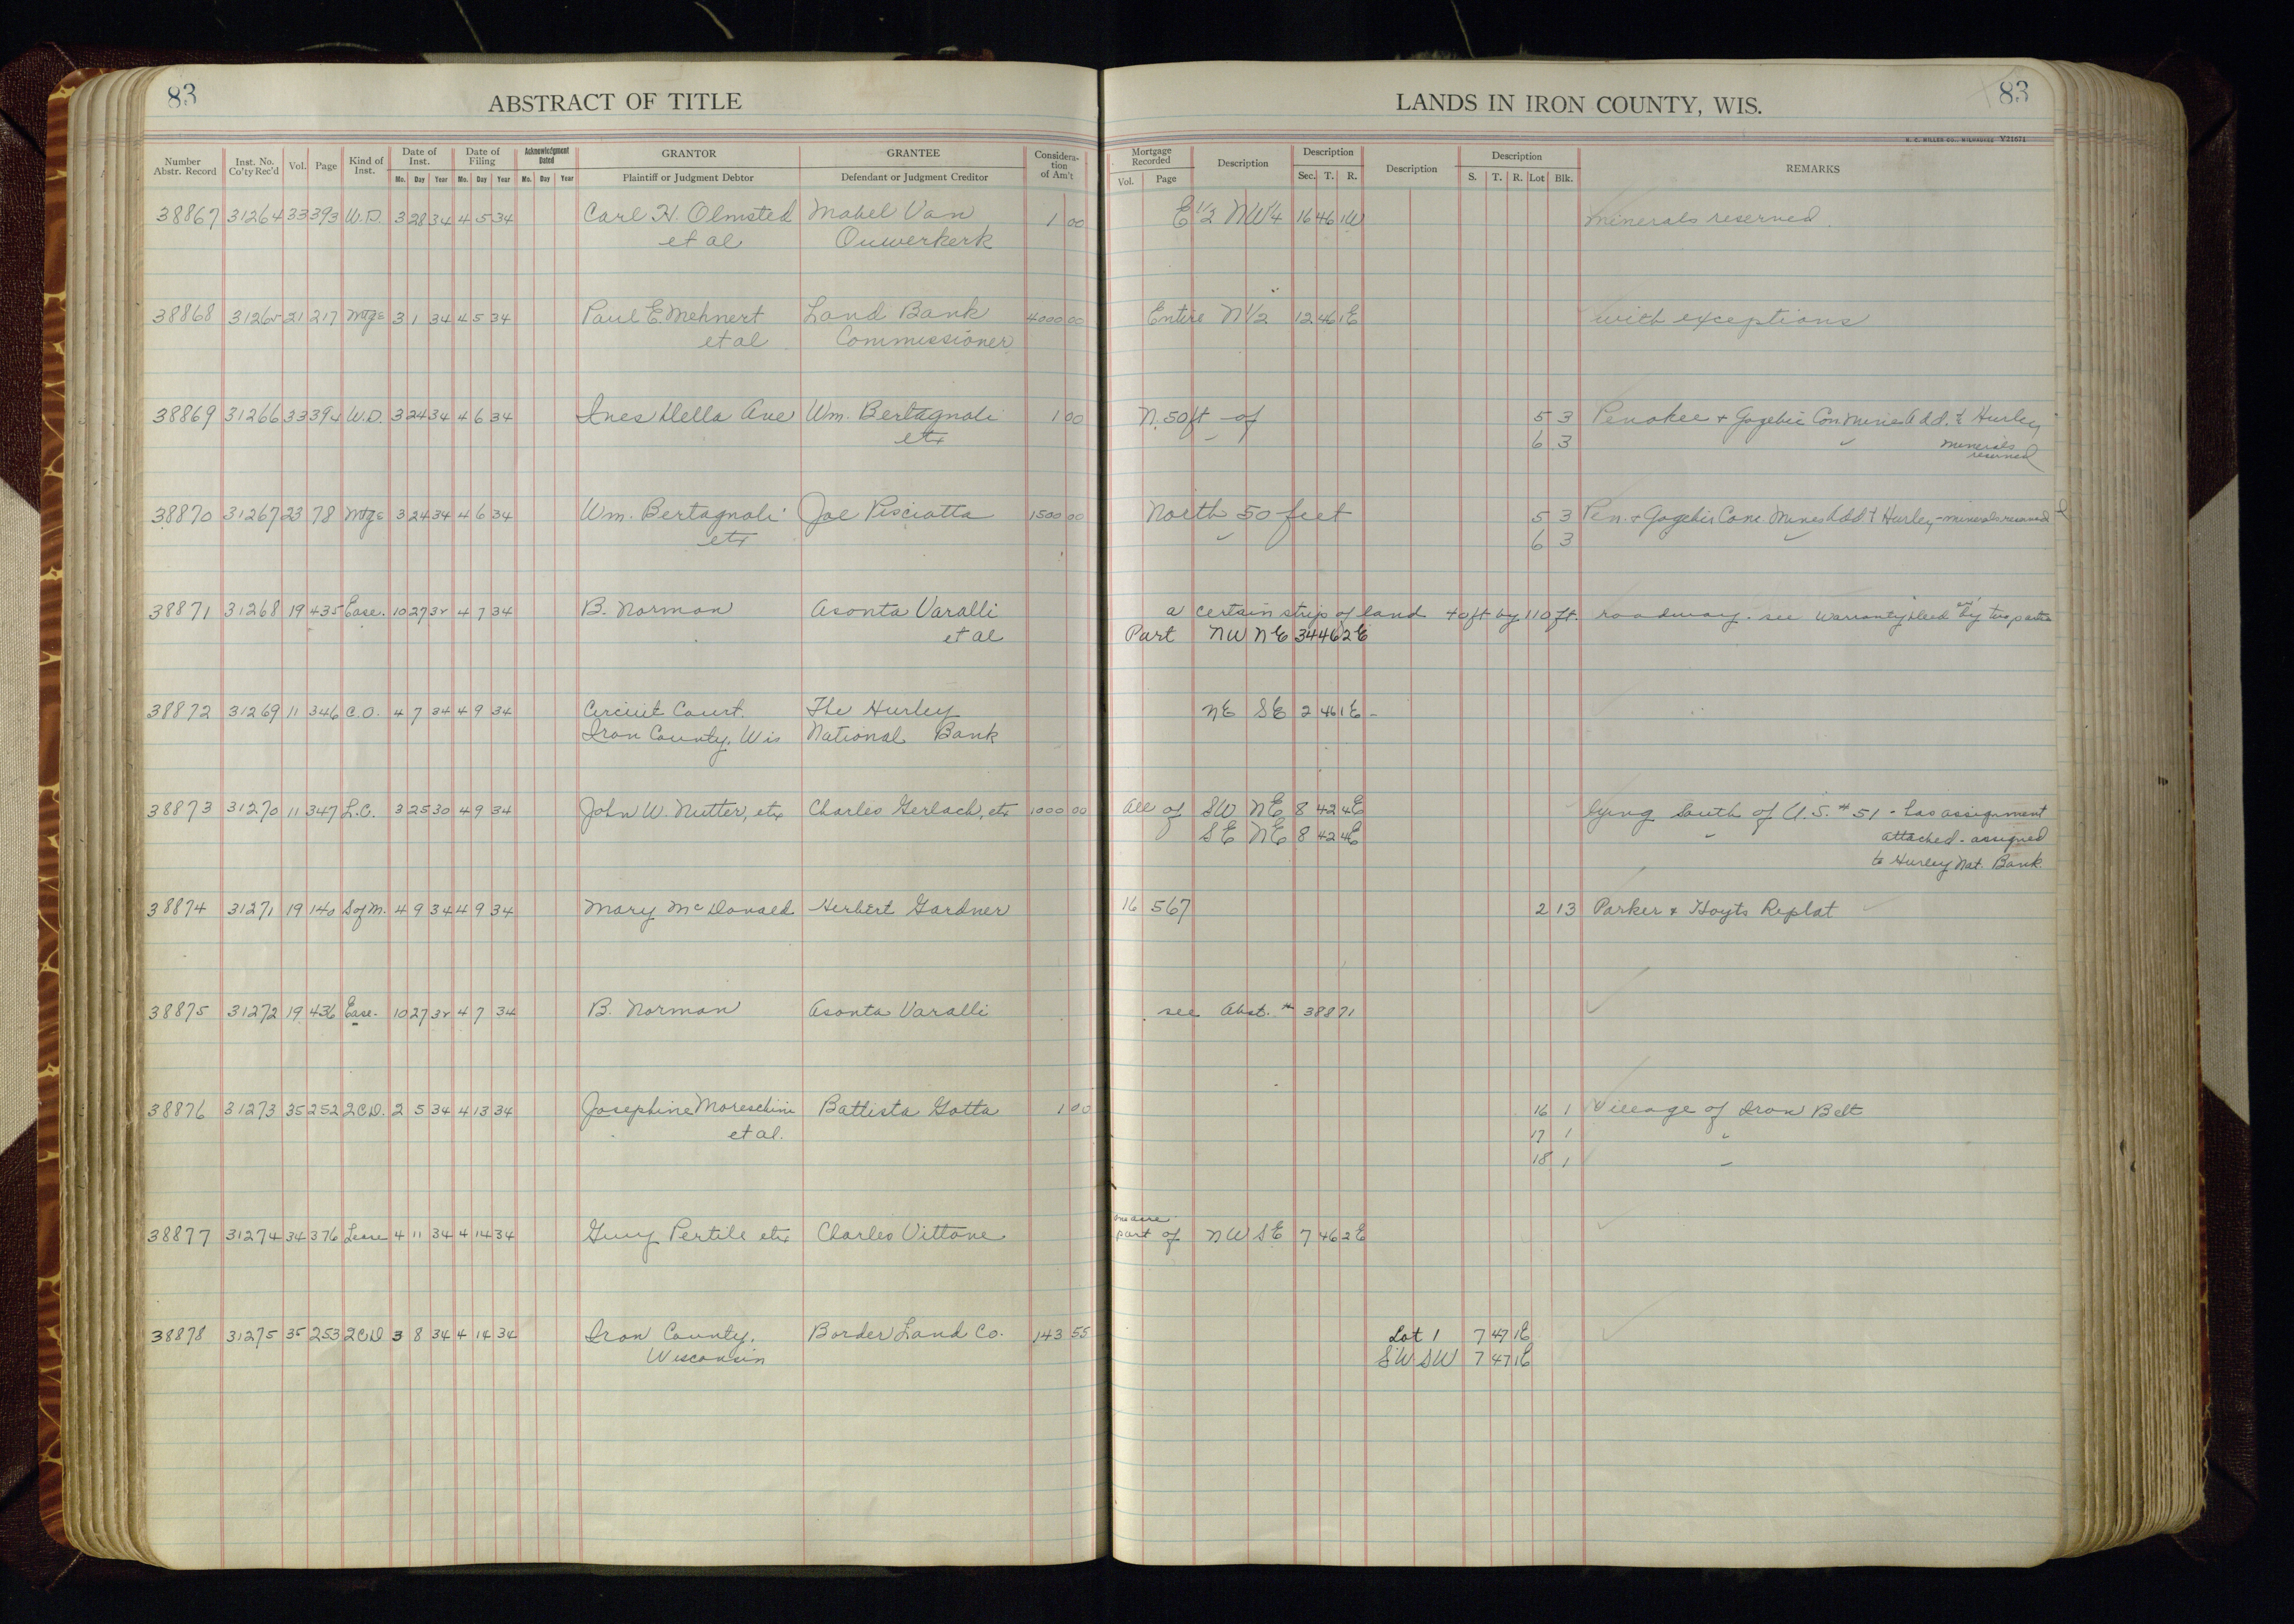 83 ABSTRACT OF TITLE LANDS IN IRON COUNTY, WIS. 83
H. C. MILLER CO., MILWAUKEE V21671
Number Abstr. Record Inst. No. Co'ty Rec'd Vol. Page Kind of Inst. Date of Inst. Mo. Day Year Date of Filing Mo. Day Year Acknowledgment Dated Mo. Day Year GRANTOR Plaintiff or Judgment Debtor GRANTEE Defendant or Judgment Creditor Consideration of Am't Mortgage Recorded Vol. Page Description Description Sec. T. R. Description Description S. T. R. Lot Blk. REMARKS
38867 31264 33 393 W.D. 3 28 34 4 5 34 Carl H. Olmsted Mabel Van 1 00 E 1/2 NW4 16 46 1W minerals reserved
et al Ouwerkerk
38868 31265 21 217 Mtge 3 1 34 4 5 34 Paul E. Mehnert Land Bank 4000 00 Entire N 1/2 12 46 1E with exceptions
et al Commissioner
38869 31266 33 394 W.D. 3 24 34 4 6 34 Ines Della Ave Wm. Bertagnoli 1 00 N. 50 ft - of 5 3 Penokee + Gogebic Con. Mines Add. t Hurley
etx 6 3 " minerals
reserved
38870 31267 23 78 Mtge 3 24 34 4 6 34 Wm. Bertagnoli Joe Pisciotta 1500 00 North 50 feet 5 3 Pen. + Gogebic Cons. Mines Add t Hurley - minerals reserved
etx " 6 3 "
38871 31268 19 435 Ease. 10 27 32 4 7 34 B. Norman Asonta Varalli a certain strip of land 40 ft by 110 ft. roadway - see Warranty Deed by two parties
et al Part NW NE 34 46 2E
38872 31269 11 346 C.O. 4 7 34 4 9 34 Circuit Court. The Hurley NE SE 2 46 1E -
Iron County, Wis National Bank
38873 31270 11 347 L.C. 3 25 30 4 9 34 John W. Nutter, etx Charles Gerlach, etx 1000 00 All of SW NE 8 42 4E lying South of U.S. # 51 - has assignment
SE NE 8 42 4E " attached - assigned
to Hurley Nat. Bank
38874 31271 19 140 S of M. 4 9 34 4 9 34 Mary McDonald Herbert Gardner 16 567 2 13 Parker & Hoyts Replat
38875 31272 19 436 Ease. 10 27 32 4 7 34 B. Norman Asonta Varalli see Abst. # 38871
38876 31273 35 252 2CD. 2 5 34 4 13 34 Josephine Moreschini Battista Gotta 1 00 16 1 Village of Iron Belt
et al. 17 1 "
18 1 "
one acre
38877 31274 34 376 Lease 4 11 34 4 14 34 Guy Pertile etx Charles Vittone part of NW SE 7 46 2E
38878 31275 35 253 2CD 3 8 34 4 14 34 Iron County, Border Land Co. 143 55 Lot 1 7 47 1E
Wisconsin SW SW 7 47 1E